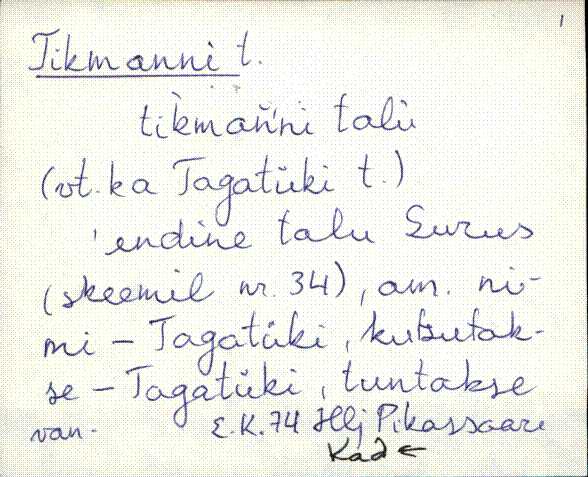 1
Tikmanni t.
tìkmañ'ni talù
(vt. ka Tagatüki t.)
'endine talu Surus
(skeemil nr. 34), am. ni-
mi - Tagatüki, kutsutak-
se - Tagatüki, tuntakse
van. E.K. 74 Hlj Pikassaare
Kad ←